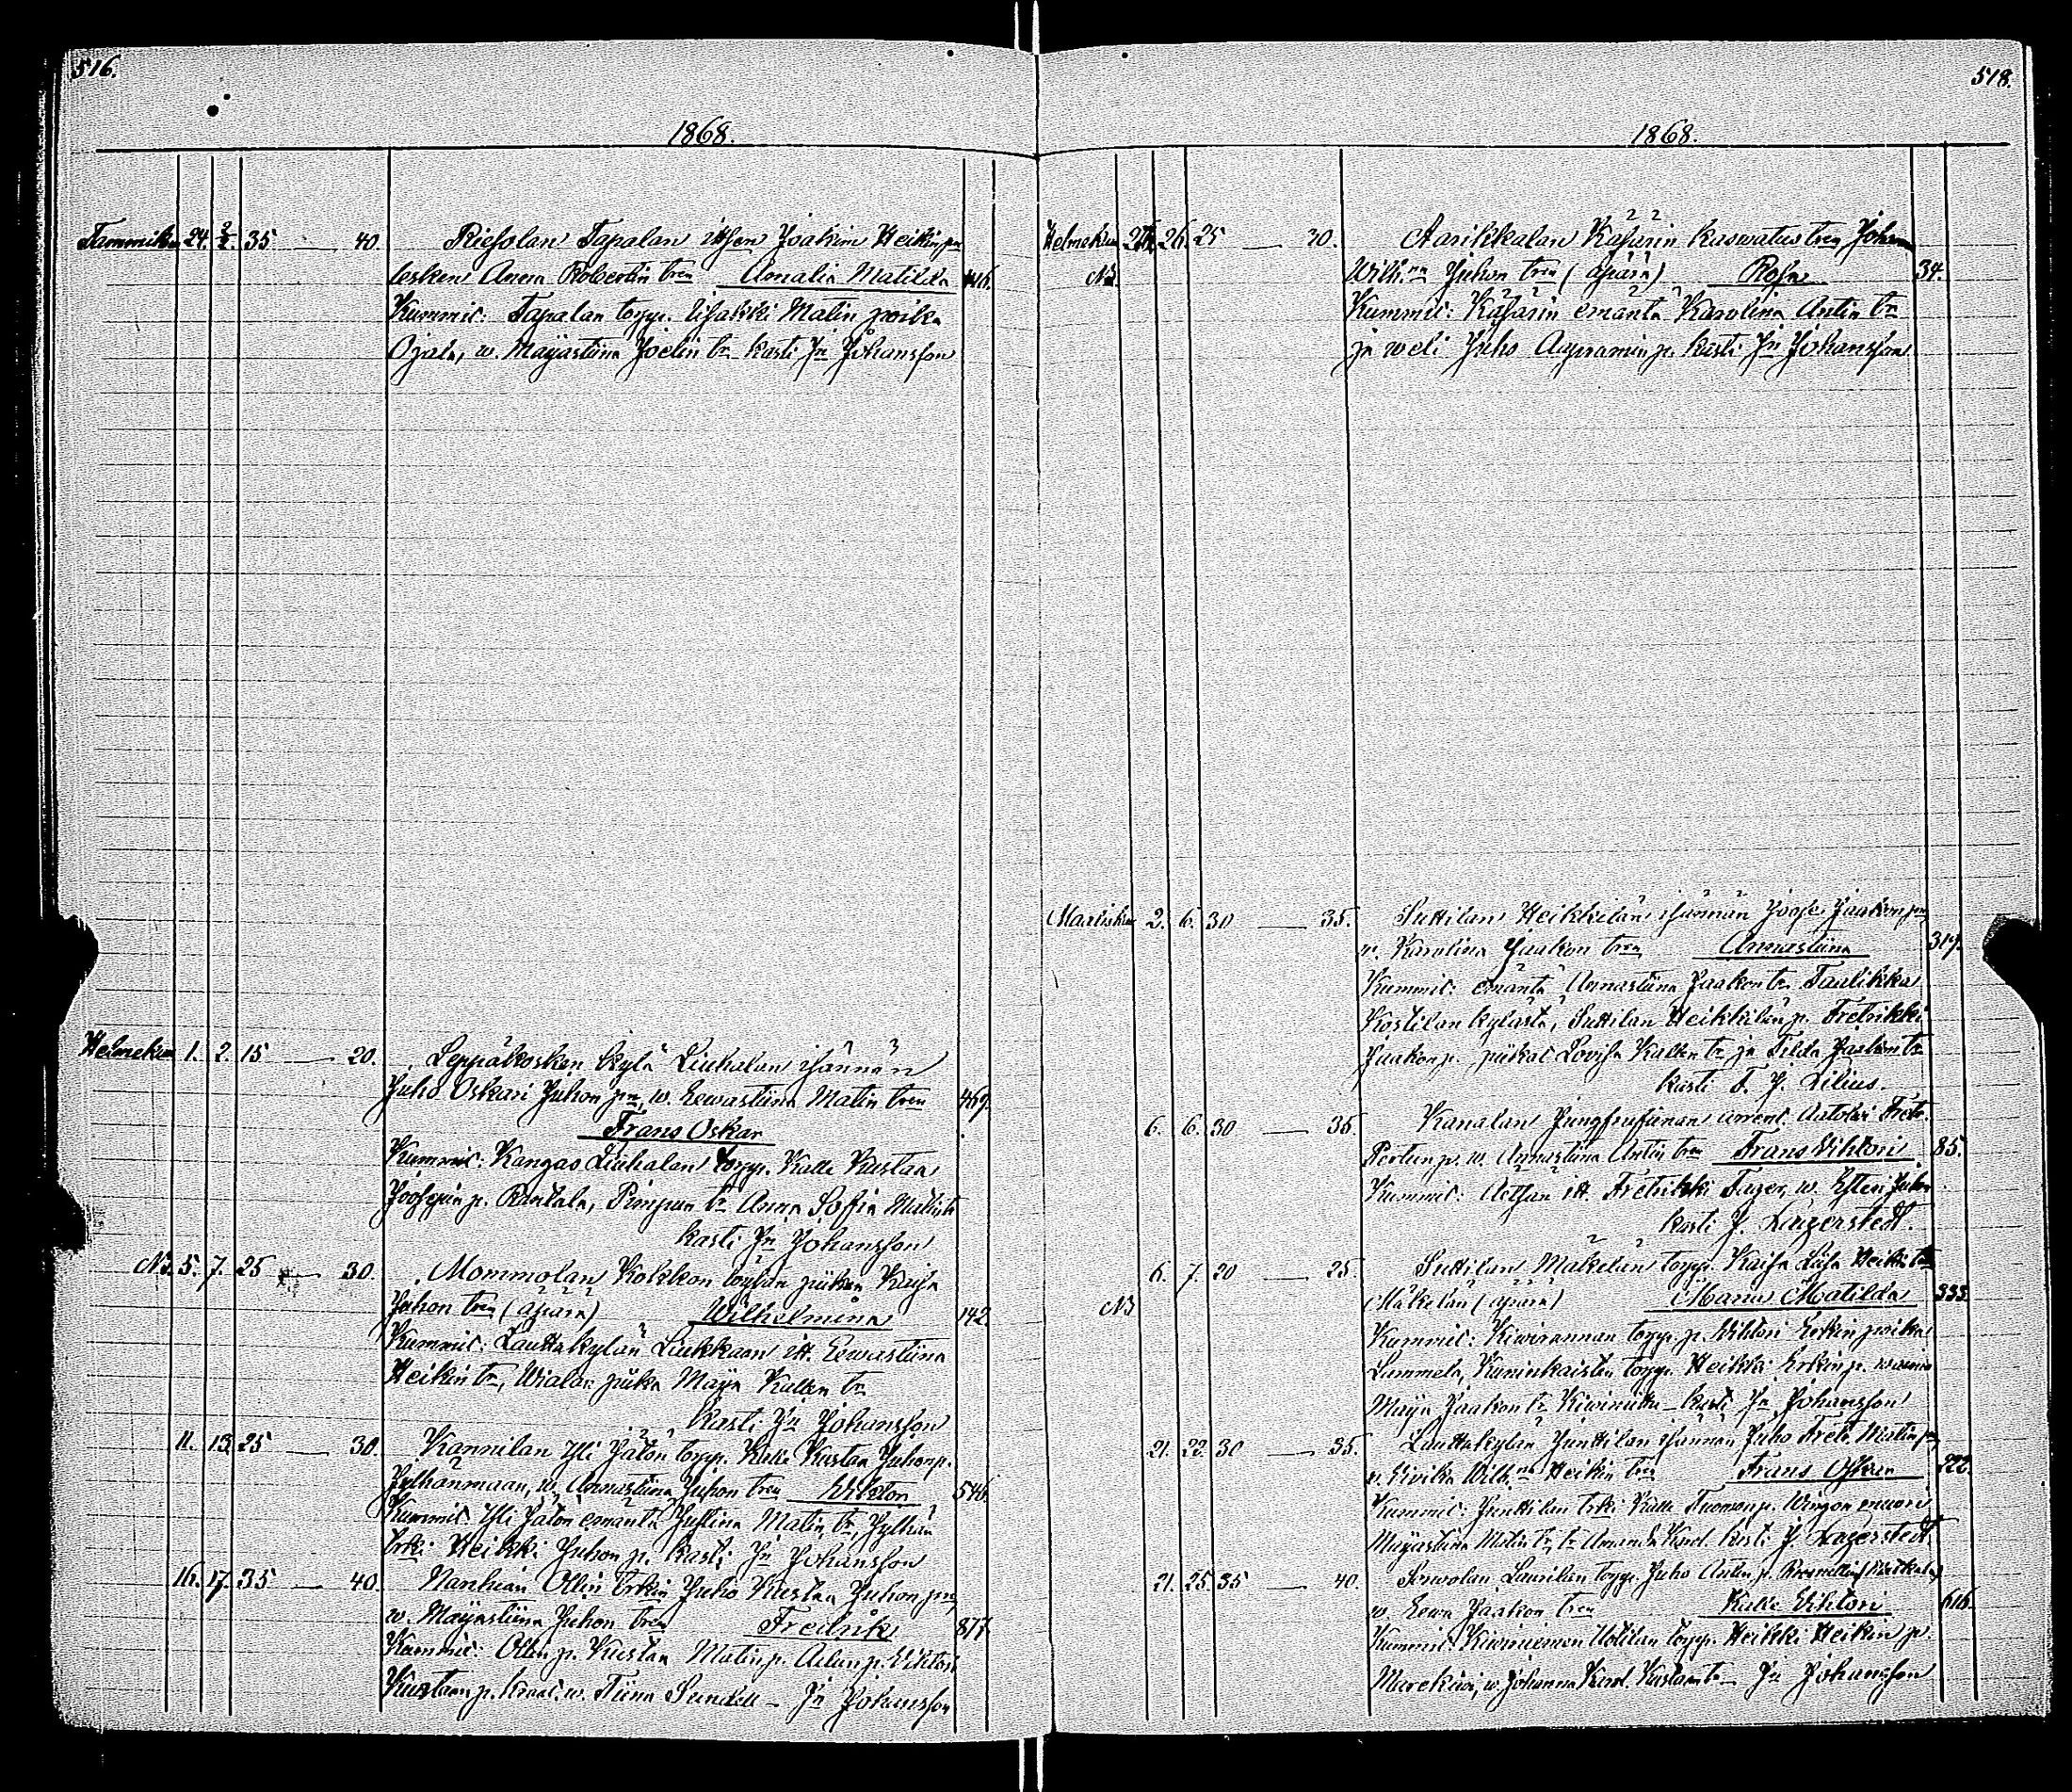 516.
1868.
Tammikuu 24. 2/2. 35 — 40. Riesolan Tapalan itsen Joakim Heikin pn
lesken Anna Robertin tren Amalia Matilda 446.
Kummit: Tapalan torpp. Iisakki Matin poika
Ojala, w. Maijastiina Joelin tr kasti Jn Johansson
Helmekuu 1. 2. 15 — 20. Leppäkosken kylä Liuhalan isännän
Juho Oskari Juhon pn, w. Eewastiina Matin tren 469.
Frans Oskar
Kummit: Kangas Liuhalan torpp. Kalle Kustaa
Joosepin p. Rantala, tr Anna Sofia
kasti Jn Johansson
No. 5. 7. 25 — 30. Mommolan Kokkon piikan Kaisa
Juhon tren (äpärä) Wilhelmina 142.
Kummit: Lauttakylän Liukkaan itt. Eewastiina
Heikin tr, Wialan piika Maija Kallen tr
Kasti Jn Johansson
11. 13. 25 — 30. Kannilan Yli Jätön torpp. Kalle Kustaa Juhon p.
Jylhänmaan, w. Annastiina Juhon tren Wiktor 546.
Kummit Yli Jätön emäntä Justina Matin tr, Jylhän
trki Heikki Juhon p. kasti Jn Johansson
16. 17. 35 — 40. Nanhian Ollin trkin Juho Kustaa Juhon pn,
w. Maijastiina Juhon tren Fredrik 877.
Kummit: Ollin p. Kustaa Matin p. Wiktori
Kustaan p. w. Tiina Sundell — Jn Johansson
518.
1868.
Helmekuu 26. 25 — 30. Aarikkalan Käsärin kaswatus tren Johan
No. Wilh.na Juhon tren (äpärä) Rosa 34.
Kummit: Käsärin emäntä Karolina Antin tr
ja weli Juho Aapramin p. kasti Jn Johansson
Maalisku 2. 6. 30 — 35. Suttilan Heikkilän isännän Joose Jaakon pn
w. Karolina Jaakon tren Annastiina 319.
Kummit: emäntä Annastiina Jaakon tr Taulikka
Kostilan kylästä, Suttilan Heikkilän p. Fretrikki
Jaakon p. piikat Lovisa Kallen tr ja Tilda Jaakon tr
kasti F. J. Lilius.
6. 6. 30 — 35. Kanalan arrent. Antoni Fretr.
Pertun p. w. Annastiina Antin tren Frans Wihtori 85.
Kummit: itt. Fretrikki Fager, w. Juhon
kasti J. Lagerstedt.
6. 7. 20 — 25. Suttilan Mäkelän torpp. Kaisa Liisa Heikin tr
No Mäkelän (äpärä) Maria Matilda 333.
Kummit: Kiwirannan torpp. p. Wihtori Erkin poika
Lammela, torpp. Heikki Erkin p. waimo
Maija Jaakon tr — kasti Jn Johansson
21. 22. 30 — 35. Lauttakylän Junttilan isännän Juho Fretr. Matin pn,
w. Wilh.na Heikin tren Frans Oskar 222.
Kummit: Junttilan trki Kalle Tuomon p.
Maijastiina Matin tr, tr Amanda Karol. kasti J. Lagerstedt
21. 25. 35 — 40. Laurilan torpp. Juho Antin p.
w. Eewa Jaakon tren Kalle Wihtori 616.
Kummit: Kiwiniemen Uotilan torpp. Heikki Heikin p.
w. Johanna Karol. Kustaan tr — Jn Johansson